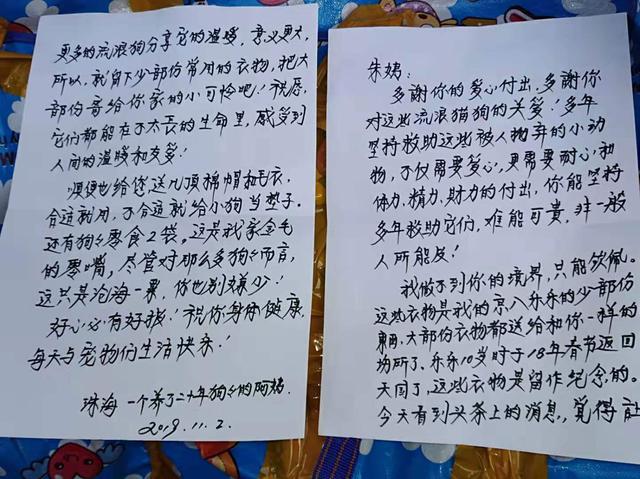 朱姨：
多謝你的爱心付出，多謝你
对这些流浪猫狗的关爱！多年
坚持救助这些被人抛弃的小动
物，不仅需要爱心，更需要耐心和
体力、精力、财力的付出，你能坚持
多年救助它们，难能可贵，非一般
人所能及！
我做不到你的境界，只能钦佩。
这些衣物是我的京八乐乐的少部份
東西，大部份衣物都送给和你一样的
场所了。乐乐10岁时于18年春节返回
天国了，这些衣物是留作纪念的。
今天看到头条上的消息，觉得让
更多的流浪狗分享它的温暖，意义更大，
所以，就留下少部份常用的衣物，把大
部份寄给你家的小可怜吧！祝愿
它们都能在不太长的生命里，感受到
人间的温暖和友爱！
顺便也给你送几顶棉帽和毛衣，
合适就用，不合适就给小狗当垫子。
还有狗狗零食2袋。这是我家金毛
的零嘴，尽管对那么多狗狗而言，
这只是沧海一粟，你也别嫌少！
好心必有好报！祝你身体健康，
每天与宠物们生活快乐！
珠海 一个养了二十年狗狗的阿姨
2019.11.2.